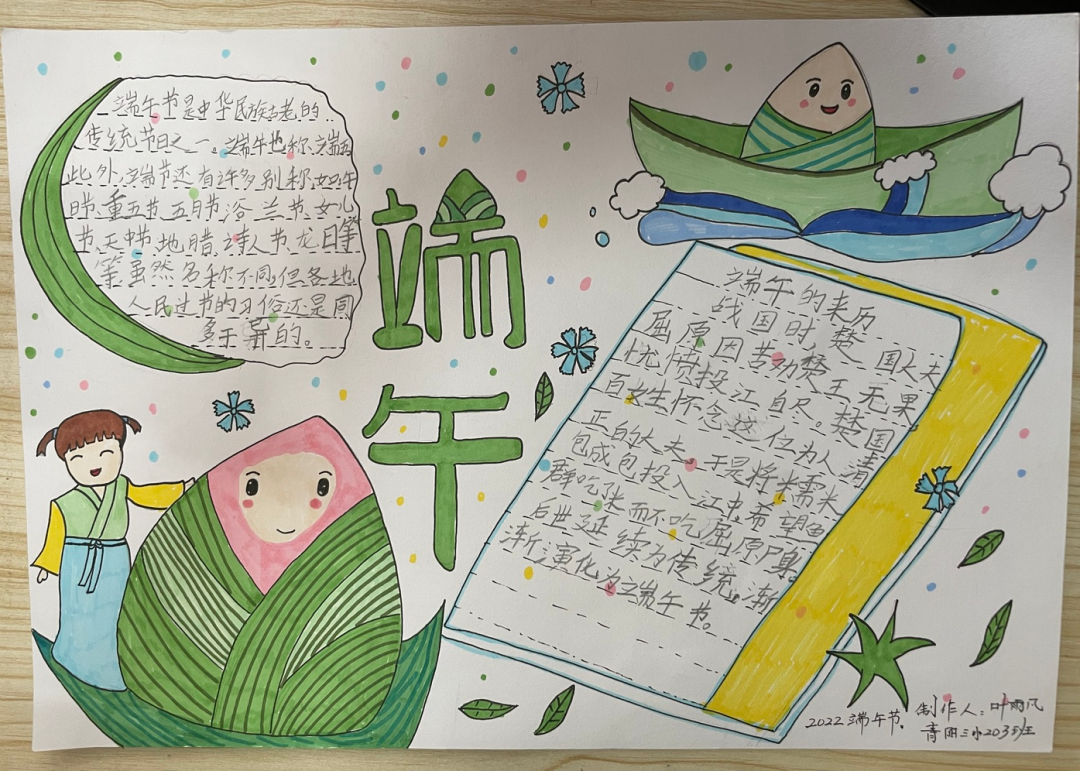 端午节是中华民族古老的
传统节日之一。端午也称端五
此外,端节还有许多别称,如:午
日节、重五节、五月节、浴兰节、女儿
节、天中节、地腊、诗人节、龙日等
等虽然名称不同,但各地
人民过节的习俗还是同
多于异的。
端
午
端午的来历
战国时,楚国人夫
屈原因苦劝楚王无果,
忧愤投江自尺。楚国
百姓生怀念这位为人清
正的大夫。于是将糯米
包成包投入江中,希望鱼
群吃米而不吃屈原尸身。
后世延续为传统。渐
渐演化为端午节。
2022端午节.
制作人:叶雨凡
青阳三小203班